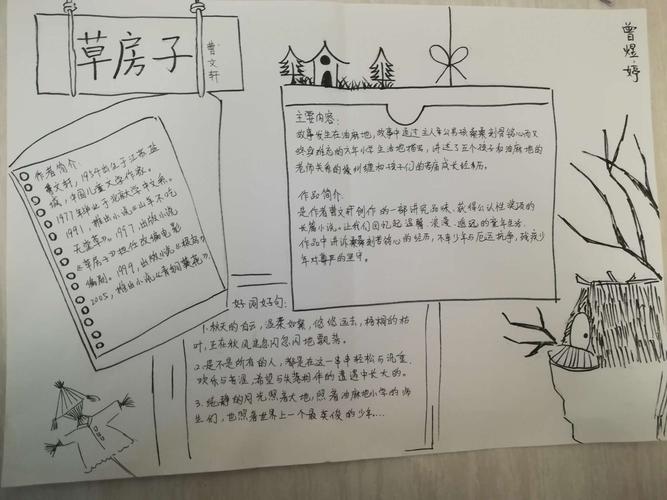 草房子
曹文轩
曾煜婷
作者简介:
曹文轩,1954出生于江苏盐
城,中国儿童文学作家。
1977年毕业于北京大学中文系。
1991,推出小说《山羊不吃
天堂草》。1997,出版小说
《草房子》担任改编电影
编剧。1999,出版小说《根鸟》
2005,推出小说《青铜葵花》
主要内容:
故事发生在油麻地,故事中通过主人公男孩桑桑刻骨铭心而又
终身难忘的六年小学生活地描写,讲述了五个孩子和油麻地的
老师关系的
孩子们的
成长经历。
作品简介
是作者曹文轩创作的一部讲究品味、获得公认性奖项的
长篇小说。让我们回忆起温馨、浪漫、遥远的童年生活.
作品中讲诉桑桑刻骨铭心的经历,不幸少年与厄运抗争,残疾少
年对尊严的坚守。
好词好句:
1.秋天的白云,温柔如絮,悠悠远去,梧桐的枯
叶,正在秋风里忽闪忽闪地飘落。
2.是不是所有的人,都是在这一串串轻松与沉重、
欢乐与苦涩、希望与失落相伴的遭遇中长大的。
3.纯静的月光照着大地,照着油麻地小学的师
生们,也照着世界上一个最英俊的少年...